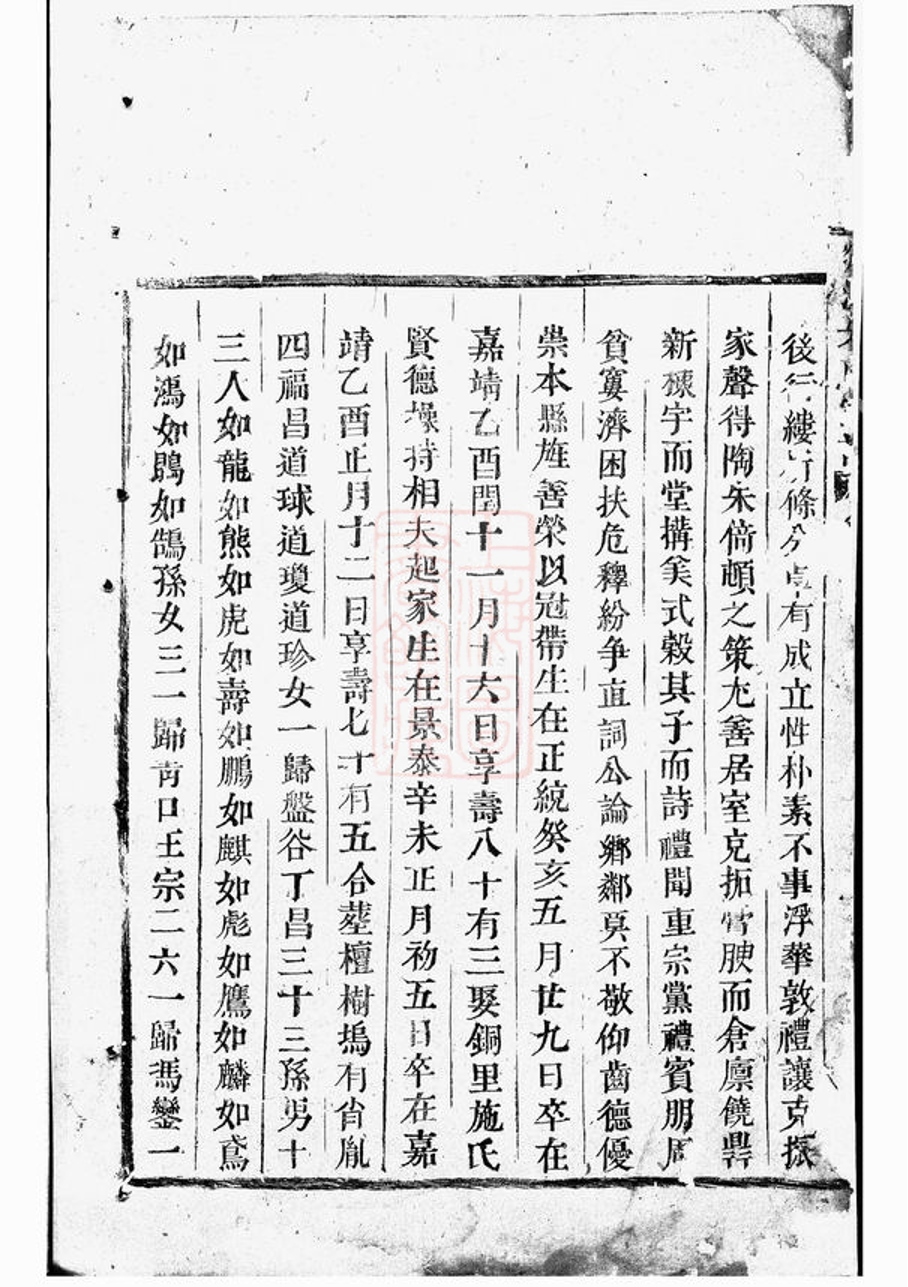 後 縷 條 有成立性朴素不事浮華敦禮讓克振
家聲得陶朱倚頓之策尤善居室克拓膏腴而倉廪饒鼎
新棟宇而堂搆美式穀其子而詩禮聞重宗黨禮賓朋周
貧寠濟困扶危釋紛争直詞公論鄉鄰莫不敬仰齒德優
崇本縣旌善榮以冠帶生在正統癸亥五月廿九日卒在
嘉靖乙酉閏十一月十六日享壽八十有三娶銅里施氏
賢德操持相夫起家生在景泰辛未正月初五日卒在嘉
靖乙酉正月十二日享壽七十有五合塟檀樹塢有肖胤
四福昌道球道瓊道珍女一歸盤谷丁昌三十三孫男十
三人如龍如熊如虎如壽如鵬如麒如彪如鷹如麟如鳶
如鴻如鵾如鵠孫女三一歸青口王宗二六一歸馮鑾一